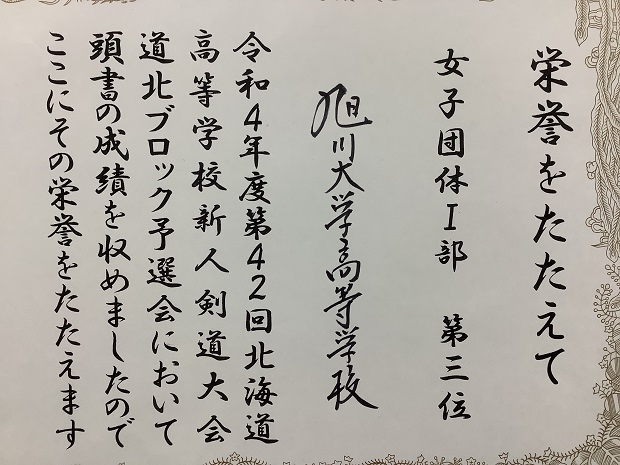 栄誉をたたえて
女子団体Ⅰ部 第三位
旭川大学高等学校
令和4年度第42回北海道
高等学校新人剣道大会
道北ブロック予選会において
頭書の成績を収めましたので
ここにその栄誉をたたえます